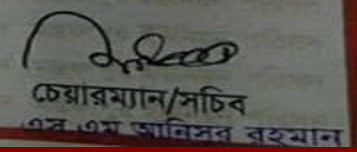 চেয়ারম্যান/সচিব
এস এম আনিসুর রহমান